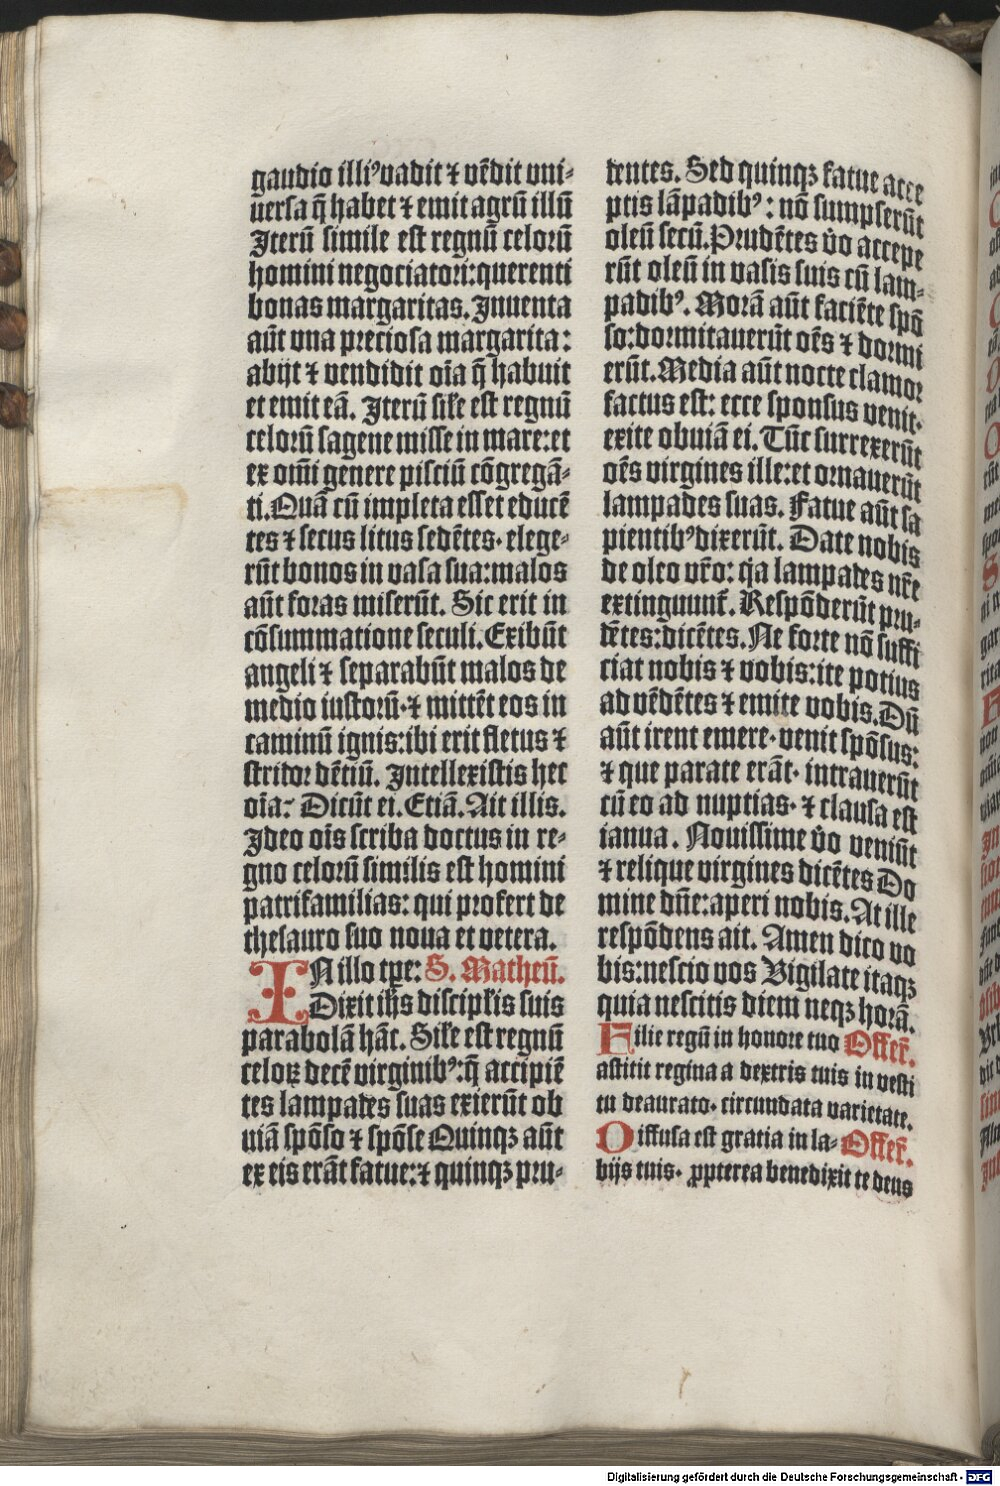 gaudio illiꝰ vadit ⁊ vēdit vni-
uersa q̄ habet ⁊ emit agrū illū
Iterū simile est regnū celorū
homini negociatori: querenti
bonas margaritas. Inuenta
aūt vna preciosa margarita:
abijt ⁊ vendidit oīa q̄ habuit
et emit eā. Iterū siłe est regnū
celorū sagene misse in mare: et
ex om̄i genere pisciū cōgregā-
ti. Quā cū impleta esset educē
tes ⁊ secus litus sedētes. elege-
rūt bonos in vasa sua: malos
aūt foras miserūt. Sic erit in
cōsummatione seculi. Exibūt
angeli ⁊ separabūt malos de
medio iustorū. ⁊ mittēt eos in
caminū ignis: ibi erit fletus ⁊
stridor dētiū. Intellexistis hec
oīa? Dicūt ei. Etiā. Ait illis.
Ideo oīs scriba doctus in re-
gno celorū similis est homini
patrifamilias: qui profert de
thesauro suo noua et vetera.
IN illo tꝑe: S. Matheū.
Dixit ih̄s discipl̄is suis
parabolā hāc. Siłe est regnū
celoꝝ decē virginibꝰ: q̄ accipiē
tes lampades suas exierūt ob
uiā spōso ⁊ spōse Quinqꝫ aūt
ex eis erāt fatue: ⁊ quinqꝫ pru-
dentes. Sed quinqꝫ fatue acce
ptis lāpadibꝰ: nō sumpserūt
oleū secū. Prudētes v̄o accepe
rūt oleū in vasis suis cū lam-
padibꝰ. Morā aūt faciēte spō
so: dormitauerūt oēs ⁊ dormi
erūt. Media aūt nocte clamor
factus est: ecce sponsus venit.
exite obuiā ei. Tūc surrexerūt
oēs virgines ille: et ornauerūt
lampades suas. Fatue aūt sa
pientibꝰ dixerūt. Date nobis
de oleo vr̄o: q̇a lampades nr̄e
extinguunt̄. Respōderūt pru-
dētes: dicētes. Ne forte nō suffi
ciat nobis ⁊ vobis: ite potius
ad vēdētes ⁊ emite vobis. Dū
aūt irent emere. venit spōsus:
⁊ que parate erāt. intrauerūt
cū eo ad nuptias. ⁊ clausa est
ianua. Nouissime v̄o veniūt
⁊ relique virgines dicētes Do
mine dn̄e: aperi nobis. At ille
respōdens ait. Amen dico vo
bis: nescio vos Vigilate itaqꝫ
quia nescitis diem neqꝫ horā.
Filie regū in honore tuo Offer̄.
astitit regina a dextris tuis in vesti
tu deaurato. circundata varietate.
Diffusa est gratia in la- Offer̄.
bijs tuis. ꝓpterea benedixit te deus
Digitalisierung gefördert durch die Deutsche Forschungsgemeinschaft - DFG